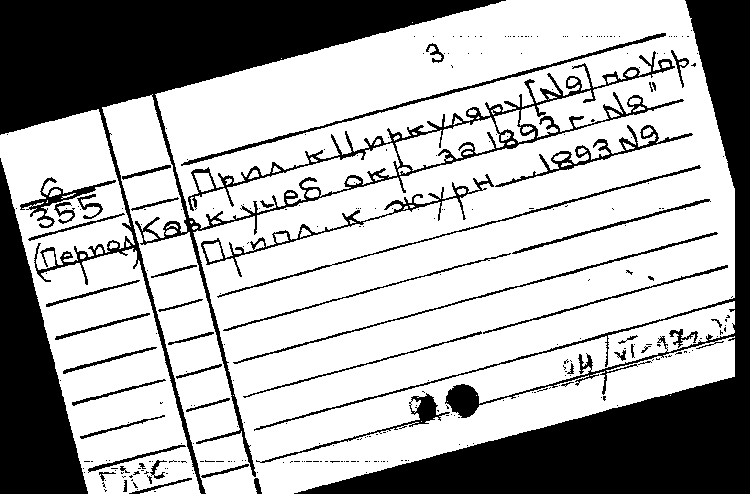 3
6
355
(Период)
"Прил. к Циркуляру [№9] по Упр.
Кавк. учеб. окр. за 1893 г. №8"
Прил. к журн. ... 1893 №9.
ГМС